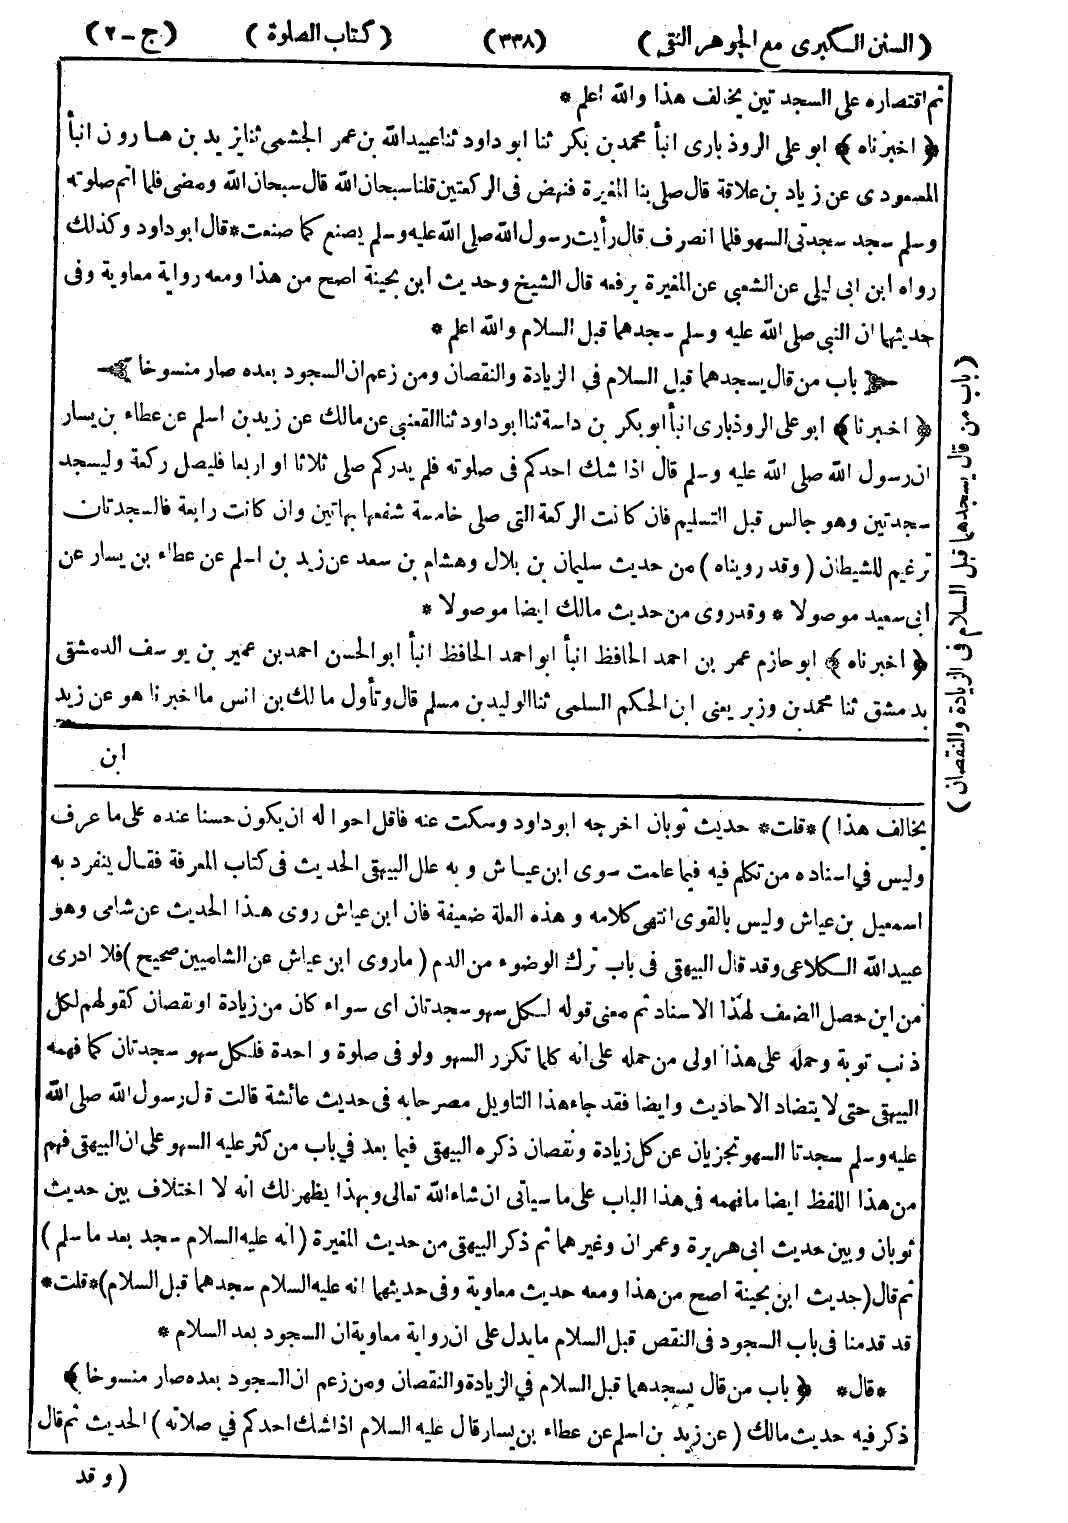 ( السنن الكبرى مع الجوهر النقى ) (٣٣٨) ( كتاب الصلوة ) ( ج - ٢ )
ثم اقتصاره على السجدتين يخالف هذا والله اعلم *
﴿ اخبرناه ﴾ ابو على الروذبارى انبأ محمد بن بكر ثنا ابو داود ثنا عبيد الله بن عمر الجشمى ثنا يزيد بن هارون انبأ
المسعودى عن زياد بن علاقة قال صلى بنا المغيرة فنهض فى الركعتين قلنا سبحان الله قال سبحان الله ومضى فلما اتم صلوته
وسلم سجد سجدتى السهو فلما انصرف قال رأيت رسول الله صلى الله عليه وسلم يصنع كما صنعت * قال ابو داود وكذلك
رواه ابن ابى ليلى عن الشعبى عن المغيرة يرفعه قال الشيخ وحديث ابن بحينة اصح من هذا ومعه رواية معاوية وفى
حديثهما ان النبى صلى الله عليه وسلم سجدهما قبل السلام والله اعلم *
باب من قال يسجدهما قبل السلام في الزيادة والنقصان ومن زعم ان السجود بعده صار منسوخا
﴿ اخبرنا ﴾ ابو على الروذبارى انبأ ابو بكر بن داسة ثنا ابو داود ثنا القعنبى عن مالك عن زيد بن اسلم عن عطاء بن يسار
ان رسول الله صلى الله عليه وسلم قال اذا شك احدكم فى صلوته فلم يدركم صلى ثلاثا او اربعا فليصل ركعة وليسجد
سجدتين وهو جالس قبل التسليم فان كانت الركعة التى صلى خامسة شفعها بهاتين وان كانت رابعة فالسجدتان
ترغيم للشيطان ( وقد رويناه ) من حديث سليمان بن بلال وهشام بن سعد عن زيد بن اسلم عن عطاء بن يسار عن
ابى سعيد موصولا * وقد روى من حديث مالك ايضا موصولا *
﴿ اخبرناه ﴾ ابو حازم عمر بن احمد الحافظ انبأ ابو احمد الحافظ انبأ ابو الحسن احمد بن عمير بن يوسف الدمشقى
بدمشق ثنا محمد بن وزير يعنى ابن الحكم السلمى ثنا الوليد بن مسلم قال وتأول مالك بن انس ما اخبرنا هو عن زيد
ابن
( باب من قال يسجدهما قبل السلام فى الزيادة والنقصان )
يخالف هذا ) * قلت * حديث ثوبان اخرجه ابو داود وسكت عنه فاقل احواله ان يكون حسنا عنده على ما عرف
وليس في اسناده من تكلم فيه فيما علمت سوى ابن عياش وبه علل البيهقى الحديث فى كتاب المعرفة فقال ينفرد به
اسمعيل بن عياش وليس بالقوى انتهى كلامه وهذه العلة ضعيفة فان ابن عياش روى هذا الحديث عن شامى وهو
عبيد الله الكلاعى وقد قال البيهقى فى باب ترك الوضوء من الدم ( ماروى ابن عياش عن الشاميين صحيح ) فلا ادرى
من اين حصل الضعف لهذا الاسناد ثم معنى قوله لكل سهو سجدتان اى سواء كان من زيادة او نقصان كقولهم لكل
ذنب توبة وحمله على هذا اولى من حمله على انه كلما تكرر السهو ولو فى صلوة واحدة فلكل سهو سجدتان كما فهمه
البيهقى حتى لا يتضاد الاحاديث وايضا فقد جاء هذا التاويل مصرحا به فى حديث عائشة قالت قال رسول الله صلى الله
عليه وسلم سجدتا السهو تجزيان عن كل زيادة ونقصان ذكره البيهقى فيما بعد في باب من كثر عليه السهو على ان البيهقى فهم
من هذا اللفظ ايضا ما فهمه فى هذا الباب على ما سياتى ان شاء الله تعالى وبهذا يظهر لك انه لا اختلاف بين حديث
ثوبان وبين حديث ابى هريرة وعمران وغيرهما ثم ذكر البيهقى من حديث المغيرة ( انه عليه السلام سجد بعد ما سلم )
ثم قال ( حديث ابن بحينة اصح من هذا ومعه حديث معاوية وفى حديثهما انه عليه السلام سجدهما قبل السلام ) * قلت *
قد قدمنا فى باب السجود فى النقص قبل السلام ما يدل على ان رواية معاوية ان السجود بعد السلام *
* قال * ﴿ باب من قال يسجدهما قبل السلام في الزيادة والنقصان ومن زعم ان السجود بعده صار منسوخا ﴾
ذكر فيه حديث مالك ( عن زيد بن اسلم عن عطاء بن يسار قال عليه السلام اذا شك احدكم في صلاته ) الحديث ثم قال
( وقد